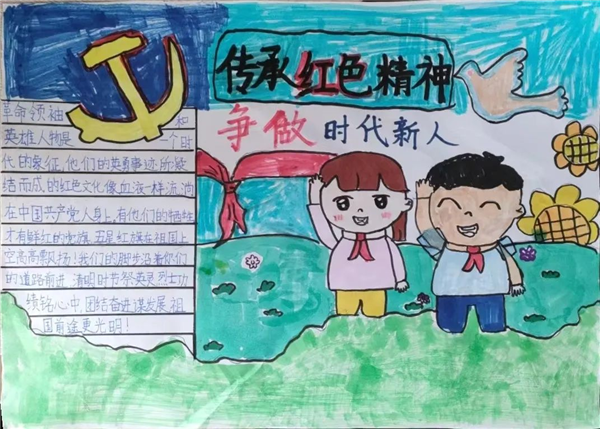 传承红色精神
争做时代新人
革命领袖 和
英雄人物是 一个时
代的象征,他们的英勇事迹所凝
结而成的红色文化像血液一样流淌
在中国共产党人身上,有他们的牺牲
才有鲜红的党旗,五星红旗在祖国上
空高高飘扬!我们的脚步沿着你们
的道路前进,清明时节祭英灵烈士功
绩铭心中,团结奋进谋发展祖
国前途更光明!